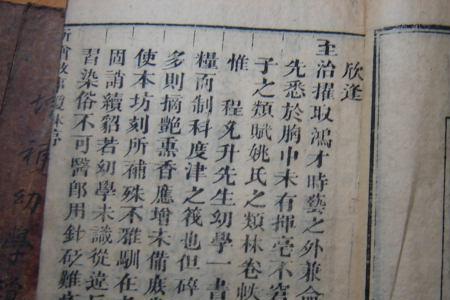 欣逢
主治擢取鴻才時藝之外兼
先悉於胸中未有揮毫不窘
子之類賦姚氏之類林卷帙
惟 程允升先生幼學一書
糧而制科度津之筏也但碎
多則摘艷熏香應增未備
使本坊刻所補殊不雅馴在
固誚續貂若幼學未識從違
習染俗不可醫郎用針砭難
故事瓊林序
幼學